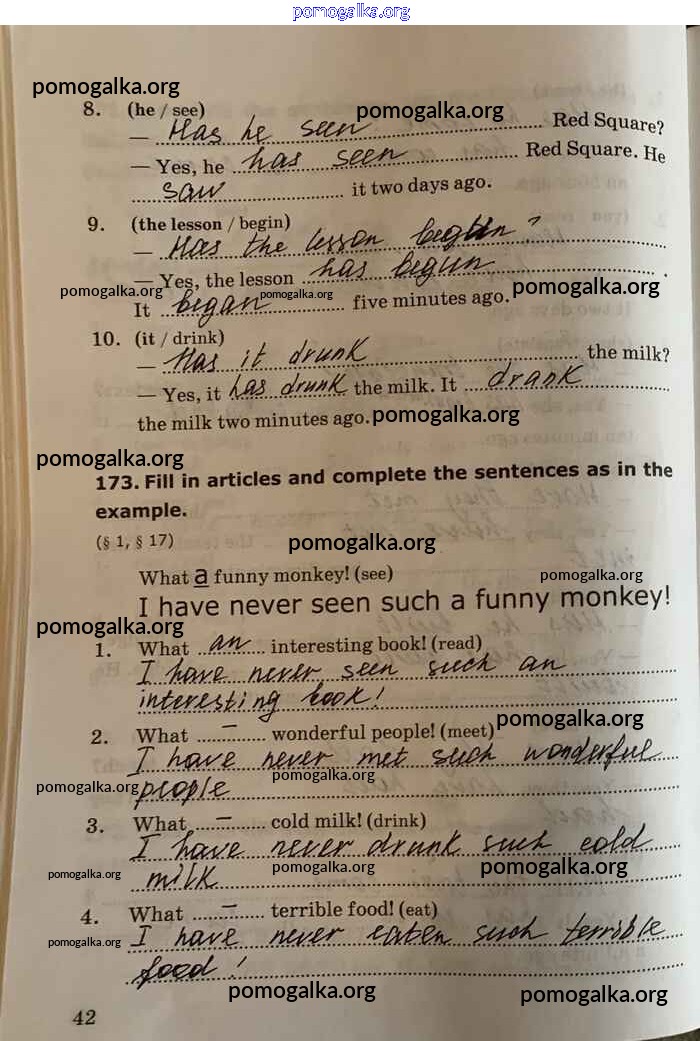 pomogalka.org
pomogalka.org
8. (he / see)
pomogalka.org
— Has he seen Red Square?
— Yes, he has seen Red Square. He
saw it two days ago.
9. (the lesson / begin)
— Has the lesson begun?
— Yes, the lesson has begun.
pomogalka.org pomogalka.org pomogalka.org
It began five minutes ago.
10. (it / drink)
— Has it drunk the milk?
— Yes, it has drunk the milk. It drank
the milk two minutes ago. pomogalka.org
pomogalka.org
173. Fill in articles and complete the sentences as in the
example.
(§ 1, § 17) pomogalka.org
What a funny monkey! (see) pomogalka.org
I have never seen such a funny monkey!
pomogalka.org
1. What an interesting book! (read)
I have never seen such an
interesting book!
pomogalka.org
2. What – wonderful people! (meet)
I have never met such wonderful
pomogalka.org
people
pomogalka.org
3. What – cold milk! (drink)
I have never drunk such cold
pomogalka.org pomogalka.org pomogalka.org
milk
4. What – terrible food! (eat)
pomogalka.org
I have never eaten such terrible
food!
pomogalka.org pomogalka.org
42